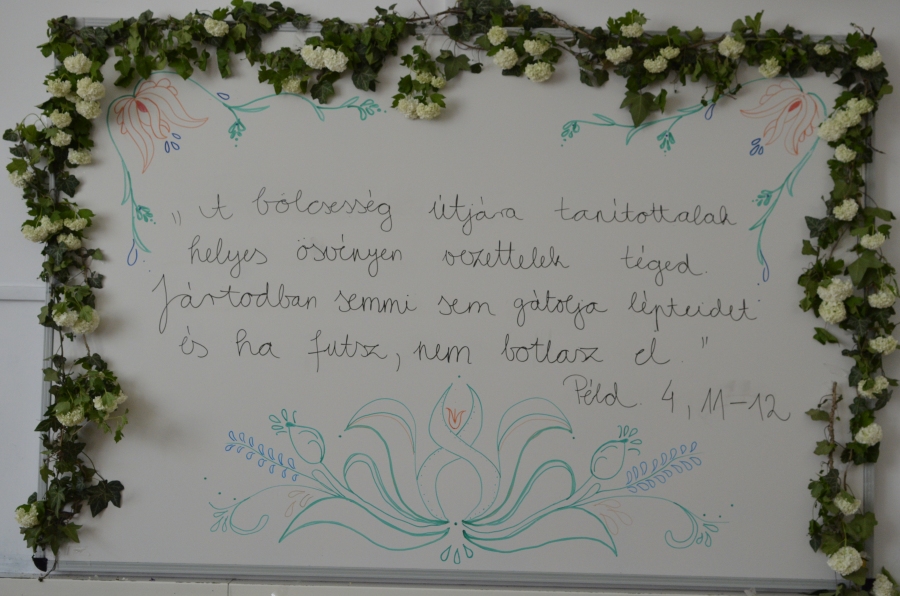 „A bölcsesség útjára tanítottalak
helyes ösvényen vezettelek téged.
Jártodban semmi sem gátolja lépteidet
és ha futsz, nem botlasz el."
Péld. 4, 11-12